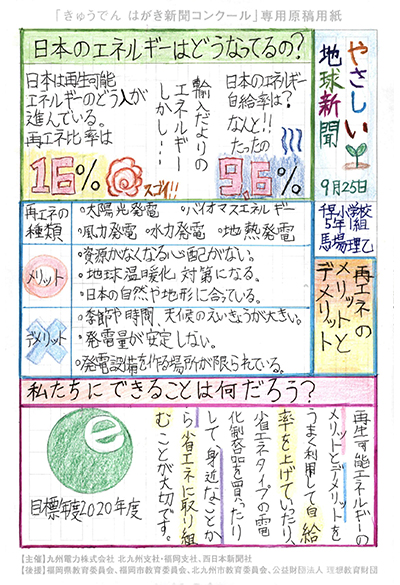 「きゅうでん はがき新聞コンクール」専用原稿用紙
やさしい
地球新聞
9月25日
5年1組
日本のエネルギーはどうなってるの?
日本のエネルギー
自給率は?
なんと!!
たったの
9.6%
輸入だよりの
エネルギー
しかし…
日本は再生可能
エネルギーのどう入が
進んでいる。
再エネ比率は
16%
スゴイ!!
再エネの
メリットと
デメリット
再エネの
種類
・太陽光発電 ・バイオマスエネルギー
・風力発電 ・水力発電 ・地熱発電
メリット
・資源がなくなる心配がない。
・地球温暖化対策になる。
・日本の自然や地形に合っている。
デメリット
・季節や時間、天候のえいきょうが大きい。
・発電量が安定しない。
・発電設備を作る場所が限られている。
私たちにできることは何だろう?
再生可能エネルギーの
メリットとデメリットを
うまく利用して自給
率を上げていったり、
省エネタイプの電
化製品を買ったり
して、身近なことか
ら省エネに取り組
むことが大切です。
e
目標年度2020年度
【主催】九州電力株式会社 北九州支社・福岡支社、西日本新聞社
【後援】福岡県教育委員会、福岡市教育委員会、北九州市教育委員会、公益財団法人 理想教育財団